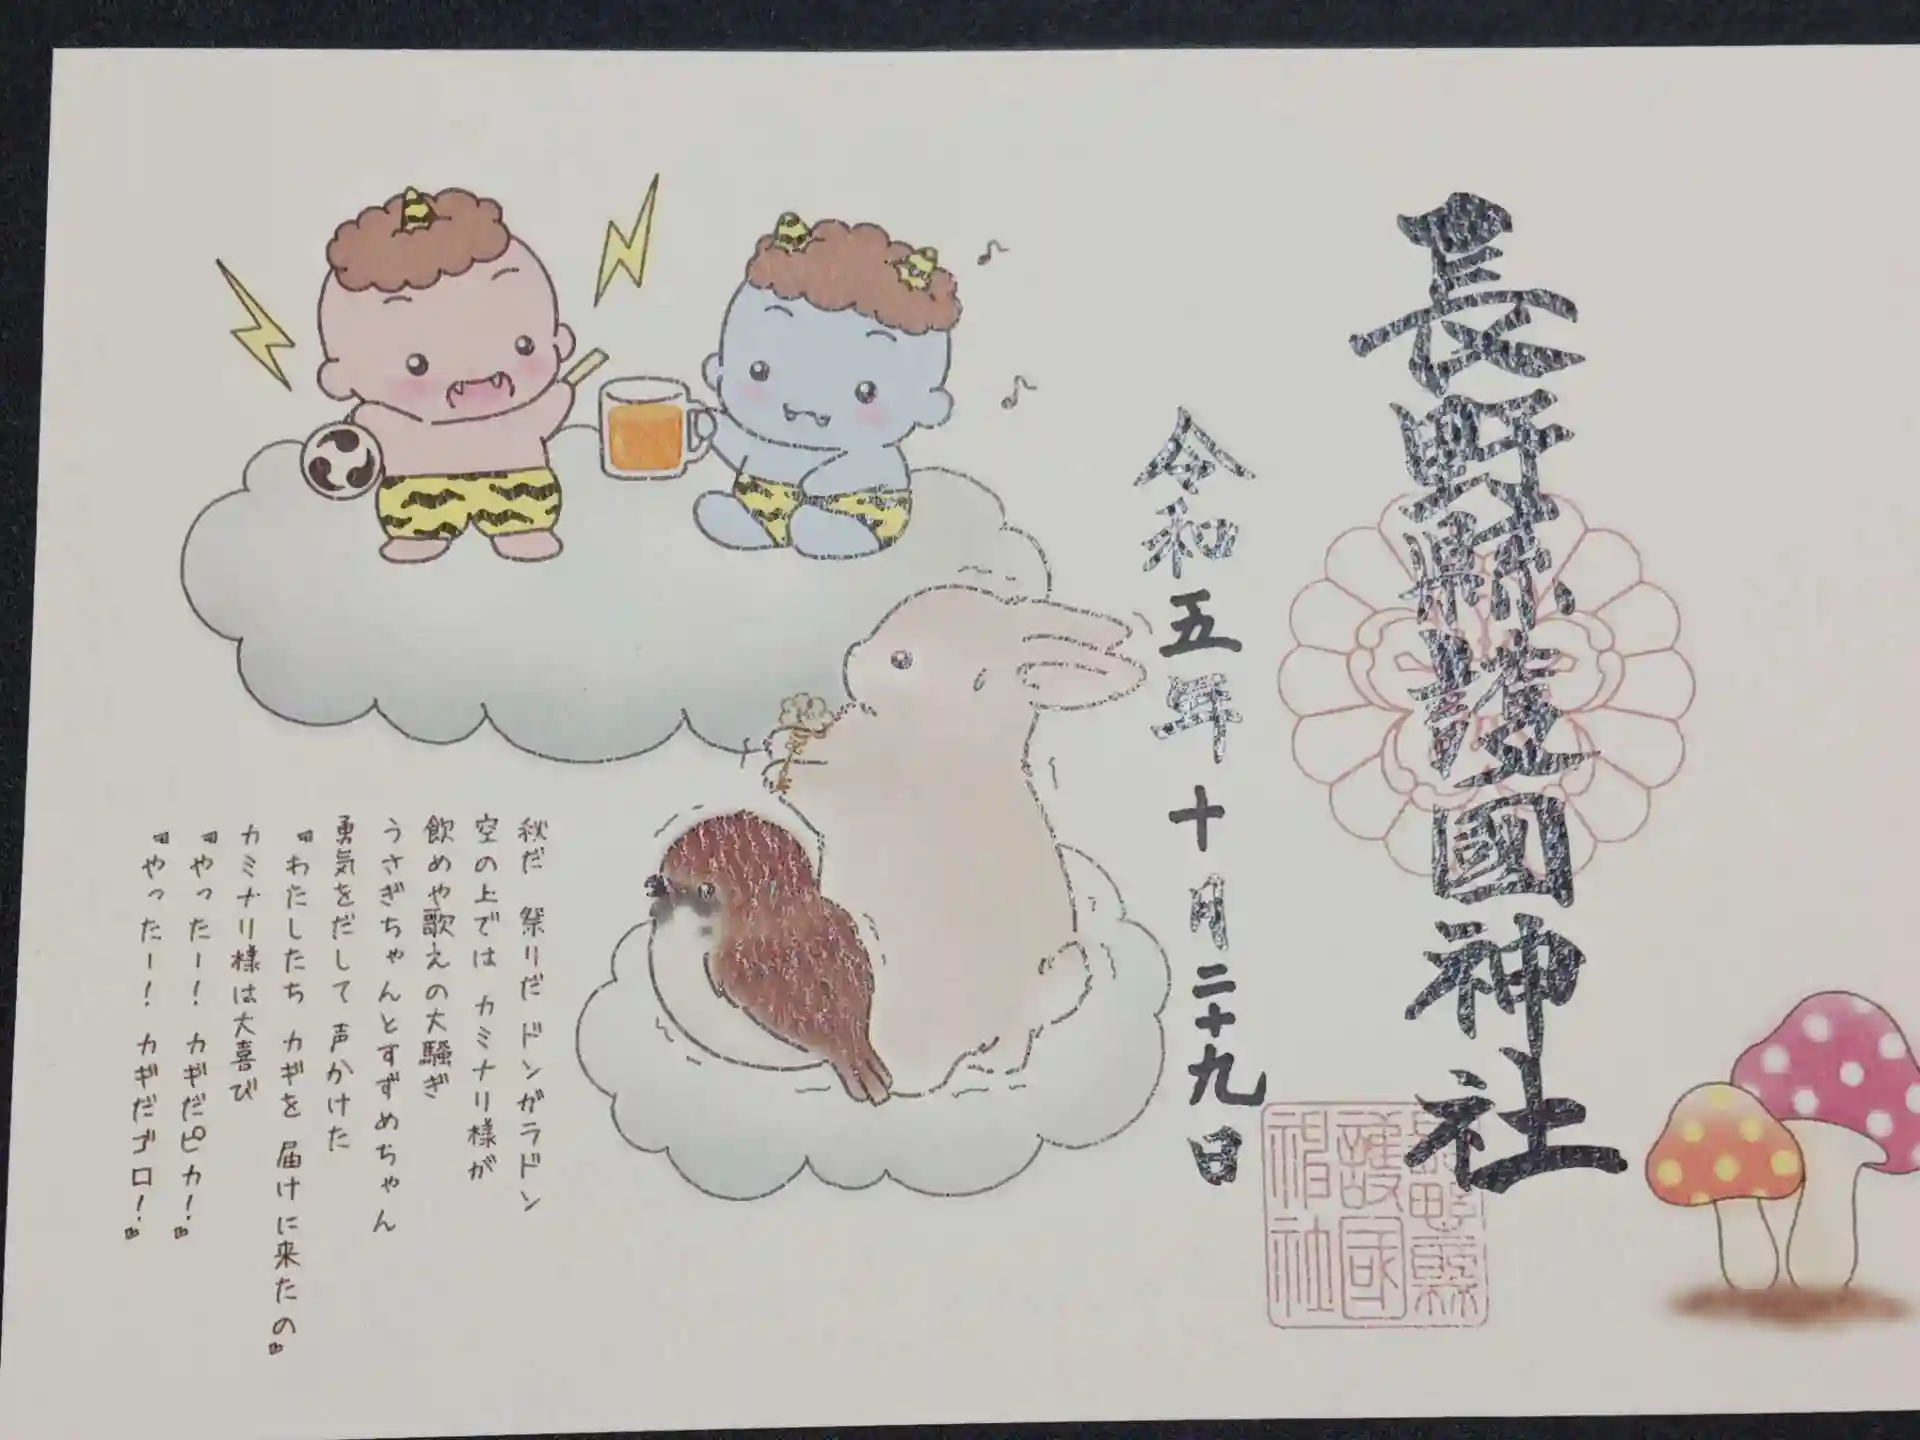 長野縣護國神社
令和五年十月二十九日
長野縣
護国
神社
秋だ 祭りだ ドンガラドン
空の上では カミナリ様が
飲めや歌えの大騒ぎ
うさぎちゃんとすずめちゃん
勇気をだして 声かけた
『わたしたち カギを 届けに来たの』
カミナリ様は大喜び
『やったー! カギだピカ!』
『やったー! カギだゴロ!』